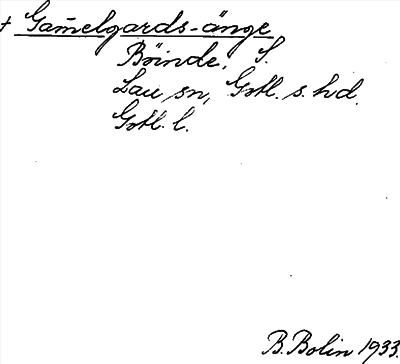 + Gam̄elgards-änge
Böinde, S.
Lau sn, Gotl. s. hd.
Gotl. l.
B. Bolin 1933.